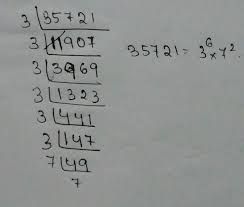 3 | 35721
3 | 11907
3 | 3969
3 | 1323
3 | 441
3 | 147
7 | 49
7
35721 = 3^6 × 7^2.